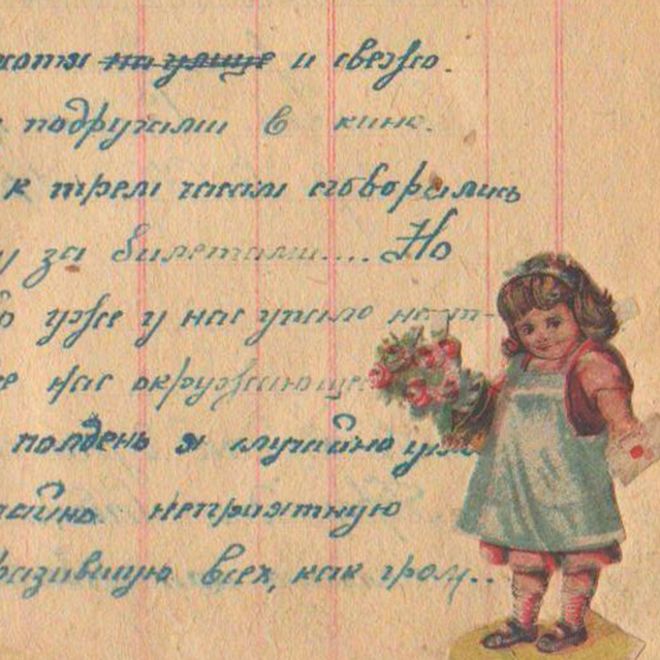 хотя на улице и свежо.
подругами в кино.
к трем часам сговорились
за билетами.... Но
уже у нас ушло
нас окружающе
полдень я случайно
чайно неприятную
разившую всех, как гром..